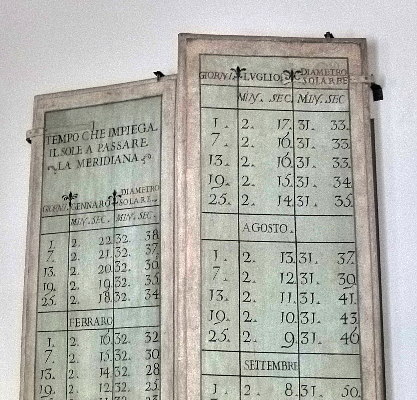 TEMPO CHE IMPIEGA
IL SOLE A PASSARE
LA MERIDIANA
GIORNI. GENNARO. DIAMETRO SOLARE.
MIN. SEC. MIN. SEC.
1. 2. 22. 32. 38
7. 2. 21. 32. 37
13. 2. 20. 32. 36
19. 2. 19. 32. 35
25. 2. 18. 32. 34
FEBRARO
1. 2. 16. 32. 32
7. 2. 15. 32. 30
13. 2. 14. 32. 28
19. 2. 12. 32. 25
GIORNI. LUGLIO. DIAMETRO SOLARE
MIN. SEC. MIN. SEC
1. 2. 17. 31. 33.
7. 2. 16. 31. 33.
13. 2. 16. 31. 33.
19. 2. 15. 31. 34
25. 2. 14. 31. 35.
AGOSTO.
1. 2. 13. 31. 37.
7. 2. 12. 31. 39.
13. 2. 11. 31. 41.
19. 2. 10. 31. 43.
25. 2. 9. 31. 46
SETTEMBRE
1. 2. 8. 31. 50.